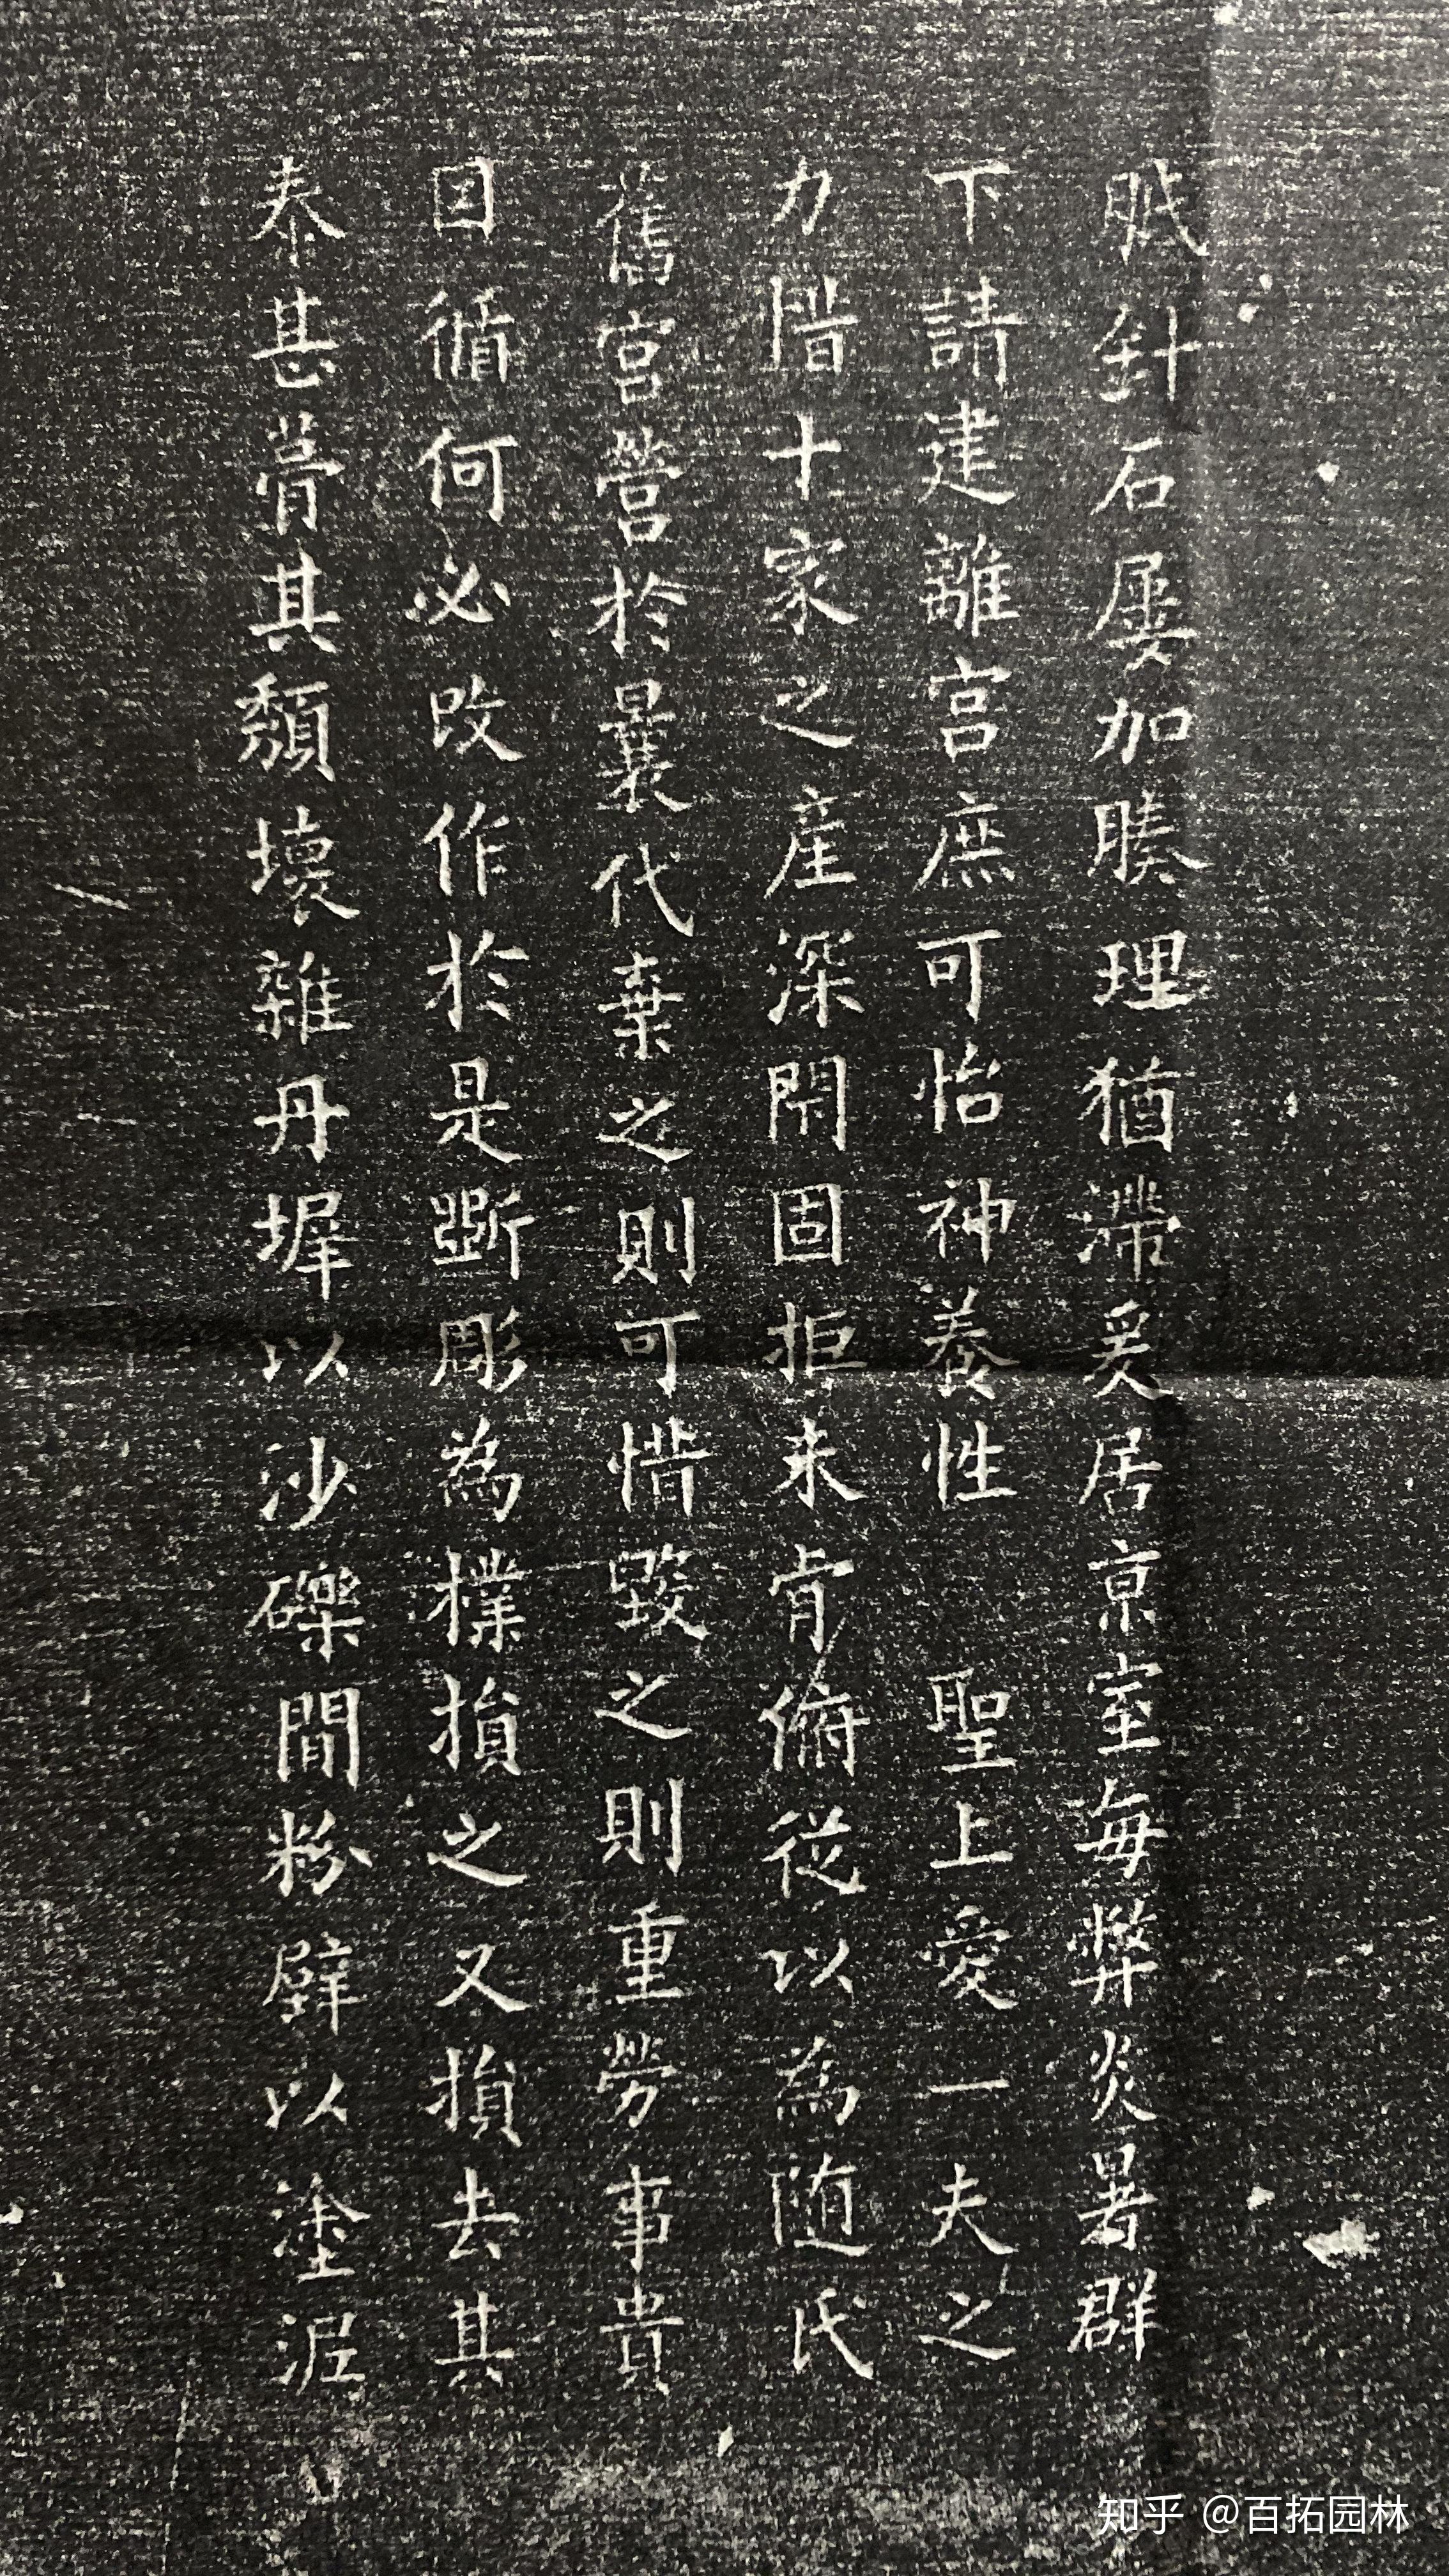 胝針石屢加腠理猶滯爰居京室每弊炎暑群
下請建離宮庶可怡神養性 聖上愛一夫之
力惜十家之產深閇固拒未肯俯從以為随氏
舊宮營於曩代棄之則可惜毀之則重勞事貴
因循何必改作於是斲彫為樸損之又損去其
泰甚葺其頹壞雜丹墀以沙礫間粉壁以塗泥
知乎 @百拓园林